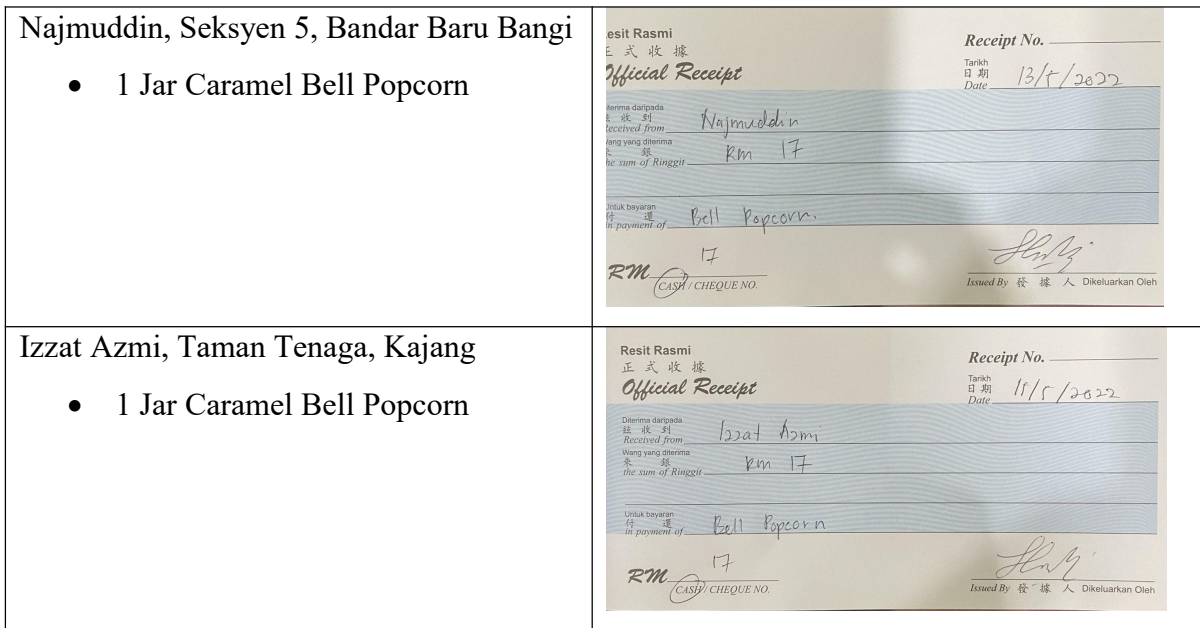 Najmuddin, Seksyen 5, Bandar Baru Bangi
• 1 Jar Caramel Bell Popcorn
esit Rasmi
正式收據
Official Receipt
Receipt No.
Tarikh
日期
Date 13/5/2022
iterima daripada
收到
Received from Najmuddin
Wang yang diterima
銀
he sum of Ringgit RM 17
Untuk bayaran
付還
in payment of Bell Popcorn.
17
RM
CASH / CHEQUE NO.
Issued By 發據人 Dikeluarkan Oleh
Izzat Azmi, Taman Tenaga, Kajang
• 1 Jar Caramel Bell Popcorn
Resit Rasmi
正式收據
Official Receipt
Receipt No.
Tarikh
日期
Date /5/2022
Diterima daripada
茲收到
Received from Izzat Azmi
Wang yang diterima
來銀
the sum of Ringgit RM 17
Untuk bayaran
付還
in payment of Bell Popcorn
17
RM
CASH / CHEQUE NO.
Issued By 發據人 Dikeluarkan Oleh